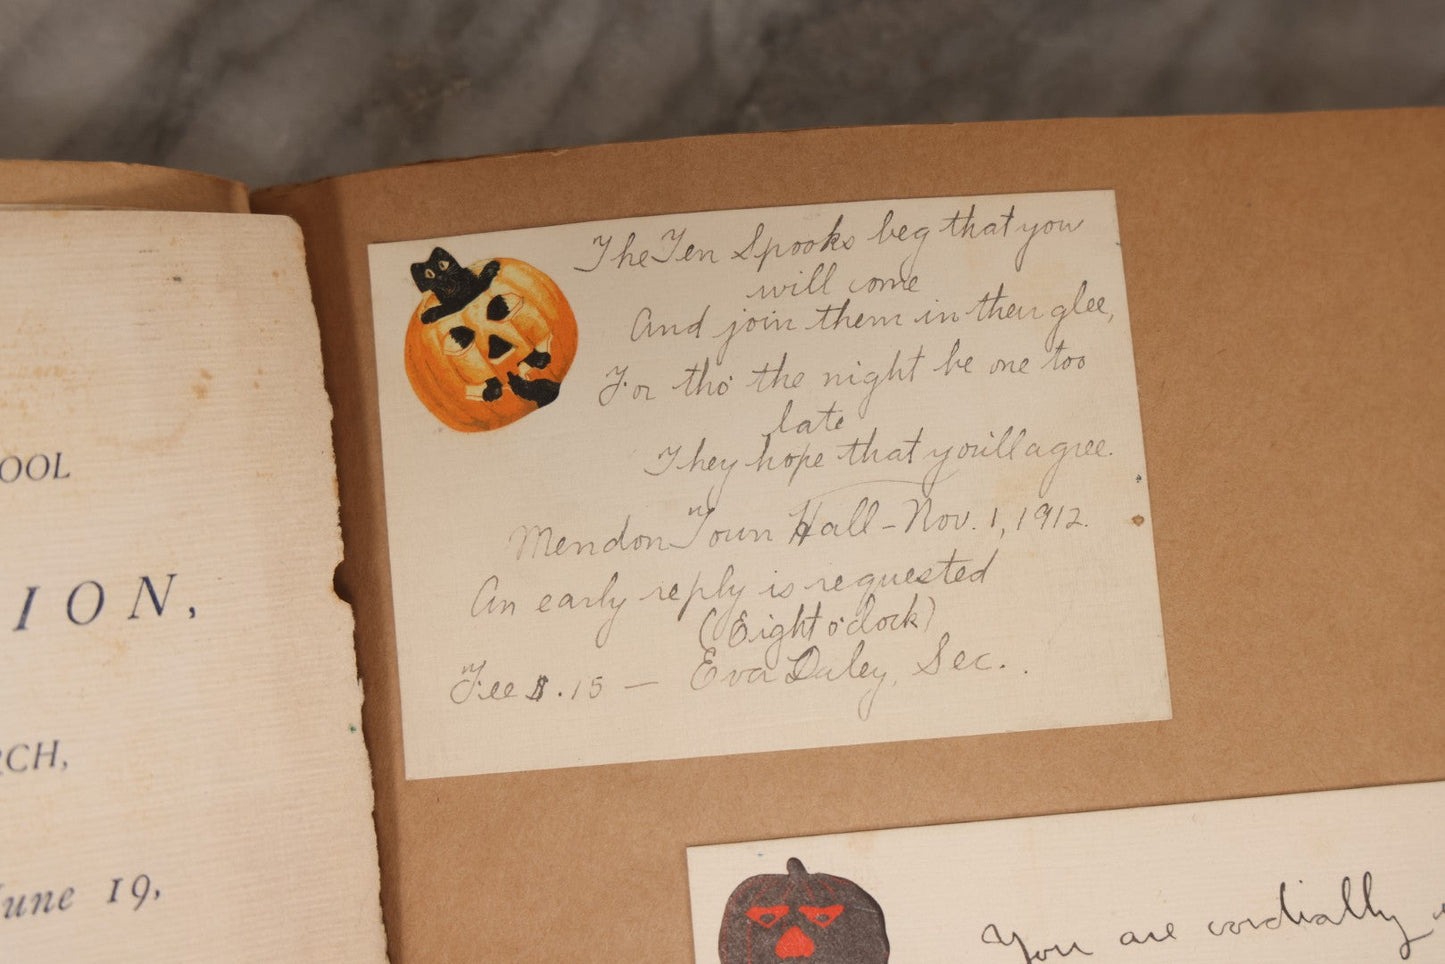 The Ten Spooks beg that you
will come
And join them in their glee,
For tho' the night be one too
late
They hope that you'll agree.
Mendon Town Hall - Nov. 1, 1912.
An early reply is requested
(Eight o'clock)
Fee $.15 — Eva Daley, Sec.
OOL
ION,
RCH,
June 19,
You are cordially